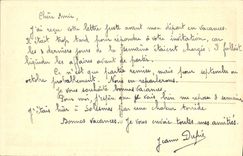 Chère Amie,
J'ai reçu votre lettre juste avant mon départ en vacances.
Il était trop tard pour répondre à votre invitation, car
les 3 derniers jours de la semaine étaient chargés : il fallait
liquider les affaires avant de partir.
Ce n'est que partie remise, mais pour septembre ou
octobre probablement. Nous en reparlerons.
Je vous souhaite bonnes vacances,
Pour moi, j'espère que je vais bien me reposer 3 semaines
J'étais hier à Solesmes par une chaleur torride.
Bonnes vacances. Je vous envoie toutes mes amitiés.
Jeann